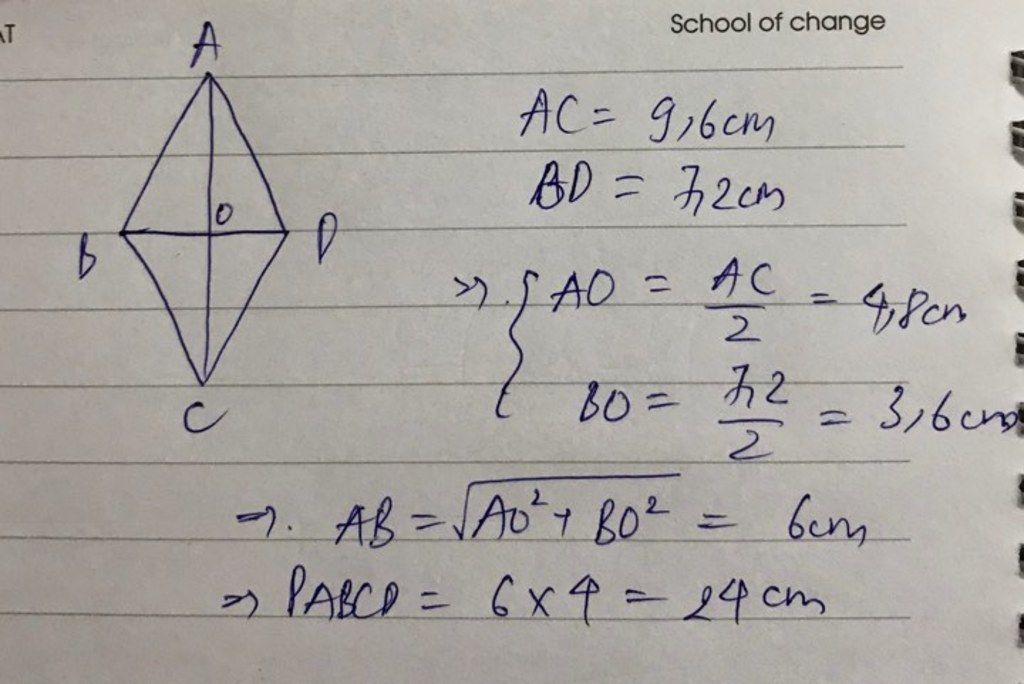 AT
School of change
A
AC = 9,6cm
BD = 7,2cm
O
B
D
=> { AO = AC/2 = 4,8cm
BO = 7,2/2 = 3,6cm
C
=> . AB = √AO² + BO² = 6cm
=> PABCD = 6 x 4 = 24 cm